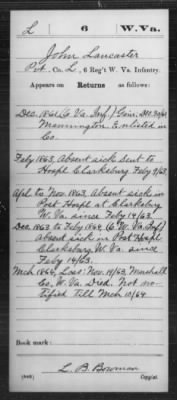 L 6 W.Va.
John Lancaster
Pvt., Co. L, 6 Reg't W. Va. Infantry.
Appears on Returns as follows:
Dec. 1861 (6 Va. Inf.) Gain, Dec. 20/61
Mannington Enlisted in
Co.
Feby 1863, Absent sick sent to
Hospl Clarksburg Feby 9/63
Apl. to Nov. 1863, Absent sick in
Post Hospl at Clarksburg
W. Va. since Feby 14/63
Dec. 1863 to Feby 1864, (6 W. Va. Inf)
absent sick in Post Hospl
Clarksburg W. Va. since
Feby 14/63.
Mch 1864, Loss: Nov. 19/63 Marshall
Co., W. Va. Died. Not no-
tified till Mch 10/64
Book mark:
L. B. Bowman
(546) Copyist.